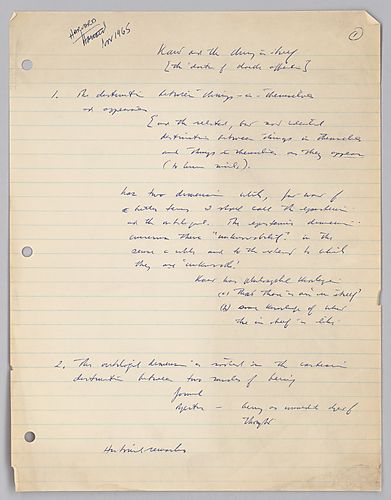 HARVARD
Harvard
Nov 1965
1
Kant and the thing in itself
[the doctrine of double affection]
1. The distinction between things-in-themselves
and appearances
[and the related, but not identical
distinction between things in themselves
and things in themselves as they appear
(to human minds).
has two dimensions which, for want of
better terms I shall call the epistemic
and the ontological. The epistemic dimension
concerns their "unknowability" in the
sense which and to the extent to which
they are 'unknowable'.
Kant has
(a) That there is an in itself
(b) some knowledge of what
the in itself is like
2. The ontological dimension is rooted in the cartesian
distinction between two modes of being
formal
objective – being as
thought
Historical remarks